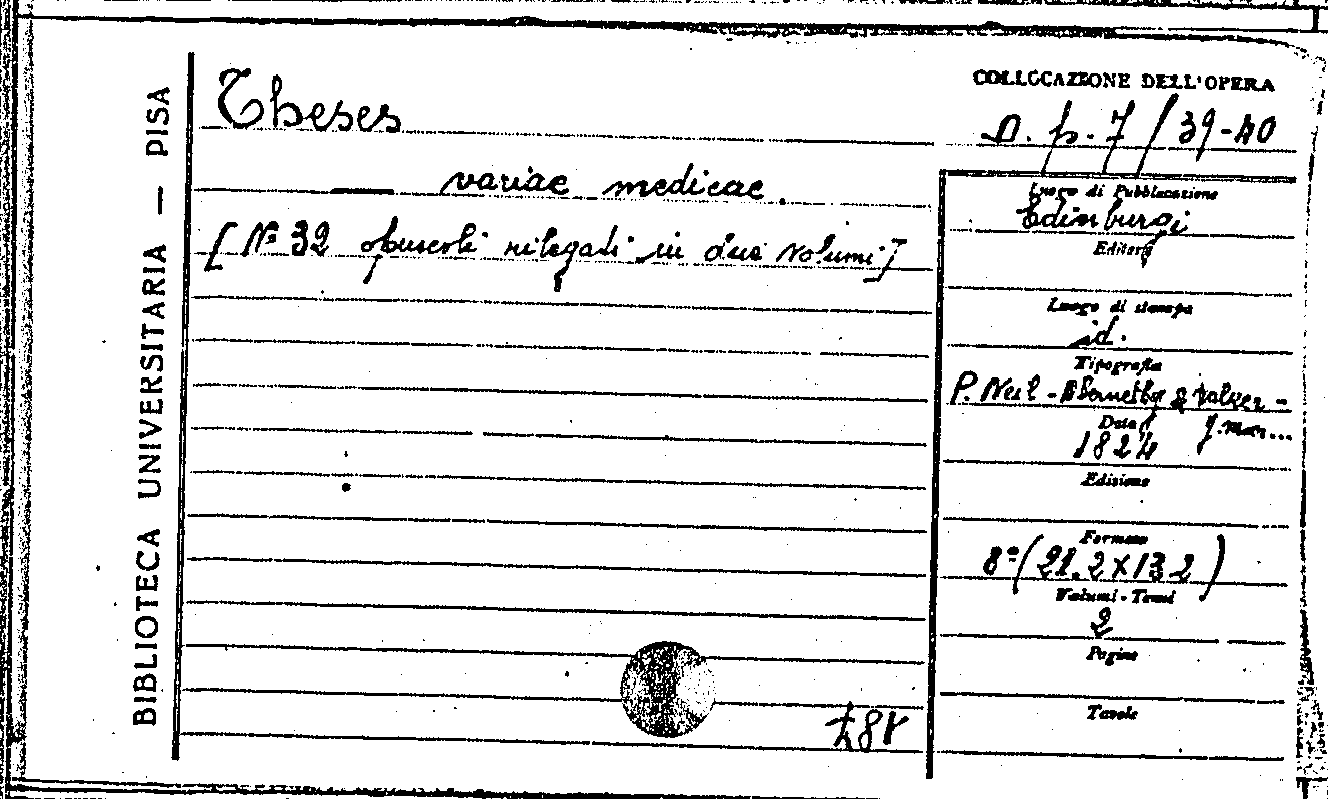 BIBLIOTECA UNIVERSITARIA — PISA
Theses
— variae medicae.
[N° 32 opuscoli rilegati in due volumi]
187
COLLOCAZIONE DELL'OPERA
n. p. 7 / 39-40
Luogo di Pubblicazione
Edinburgi
Editore
Luogo di stampa
id.
Tipografia
P. Neil - Abernethy & Valker -
Data
J. mar...
1824
Edizione
Formato
8° (21.2 X 13 2)
Volumi - Tomi
2
Pagine
Tavole